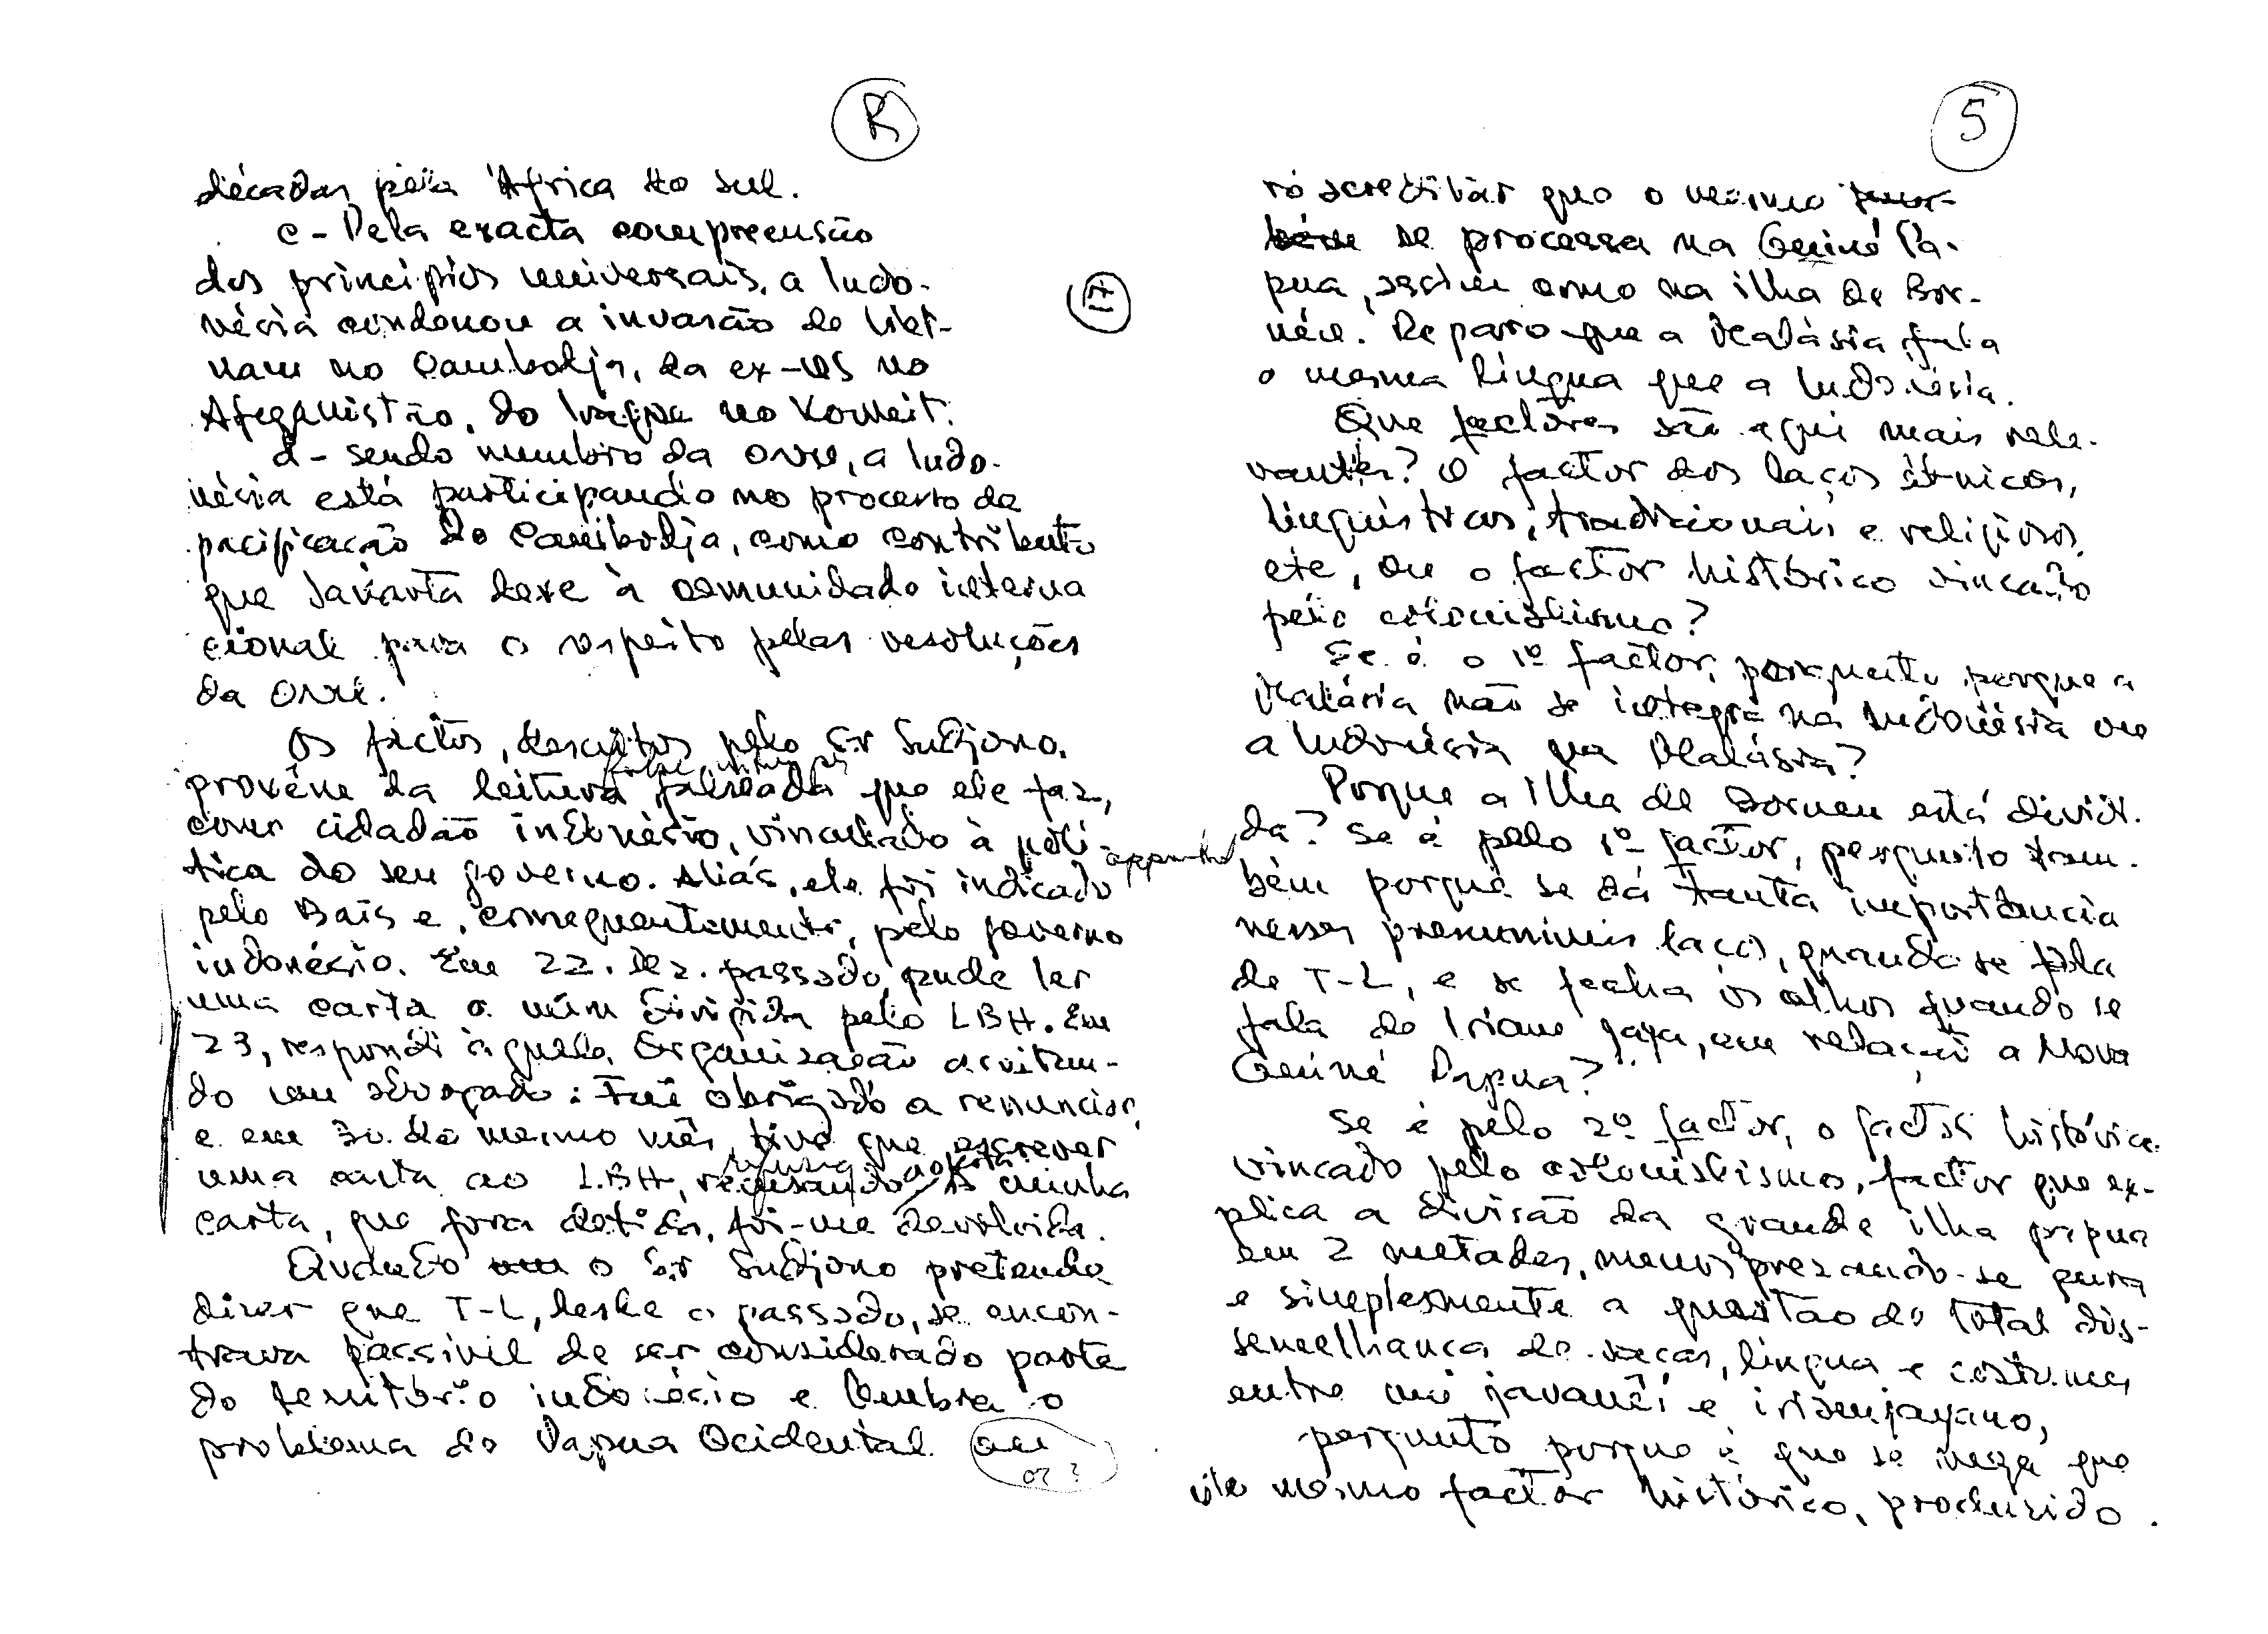 R
décadas pela África do Sul.
c - Pela exacta compreensão
dos princípios universais, a Indo-
nésia condenou a invasão do Viet-
nam no Cambodja, da ex-URS no
Afeganistão, do Iraque no Koweit.
d - sendo membro da ONU, a Indo-
nésia está participando no processo de
pacificação do Cambodja, como contributo
que Jakarta deve à comunidade interna
cional para o respeito pelas resoluções
da ONU.
Os factos, descritos pelo Sr Sudjono,
provêm da leitura falseada que ele faz,
como cidadão indonésio, vinculado à polí-
tica do seu governo. Aliás, ele foi indicado
pelo Bais e, consequentemente, pelo governo
indonésio. Em 22. Dez. passado, pude ler
uma carta a mim dirigida pelo LBH. Em
23, respondi àquela Organização aceitan-
do um advogado: Fui obrigado a renunciar,
e em 30 do mesmo mês, tive que escrever
uma carta ao LBH, recusando. A minha
carta, que fora detida, foi-me devolvida.
Quando o Sr Sudjono pretende
dizer que T-L, desde o passado, se encon-
trava passível de ser considerado parte
do território indonésio e lembra o
problema do Papua Ocidental
or ?
17
appointed
5
rá acreditar que o mesmo tam-
bém se processa na Guiné Pa-
pua, assim como na ilha de Bor-
néu. Reparo que a Malásia fala
a mesma língua que a Indonésia.
Que factores são aqui mais rele-
vantes? O factor dos laços étnicos,
linguísticos, tradicionais e religiosos,
etc, ou o factor histórico vincado
pelo colonialismo?
Se é o 1º factor, pergunto porque a
Malásia não se integra na Indonésia ou
a Indonésia na Malásia?
Porque a Ilha de Borneu está dividi-
da? Se é pelo 1º factor, pergunto tam-
bém porquê se dá tanta importância
nesses presumíveis laços, quando se fala
de T-L, e se fecha os olhos quando se
fala do Irian Jaya, em relação a Nova
Guiné Papua?
Se é pelo 2º factor, o factor histórico
vincado pelo colonialismo, factor que ex-
plica a divisão da grande ilha papua
em 2 metades, menosprezando-se pura
e simplesmente a questão da total dis-
semelhança de raças, língua e costumes
entre um javanês e irianjayano,
pergunto porque é que se nega que
este mesmo factor histórico, produzido